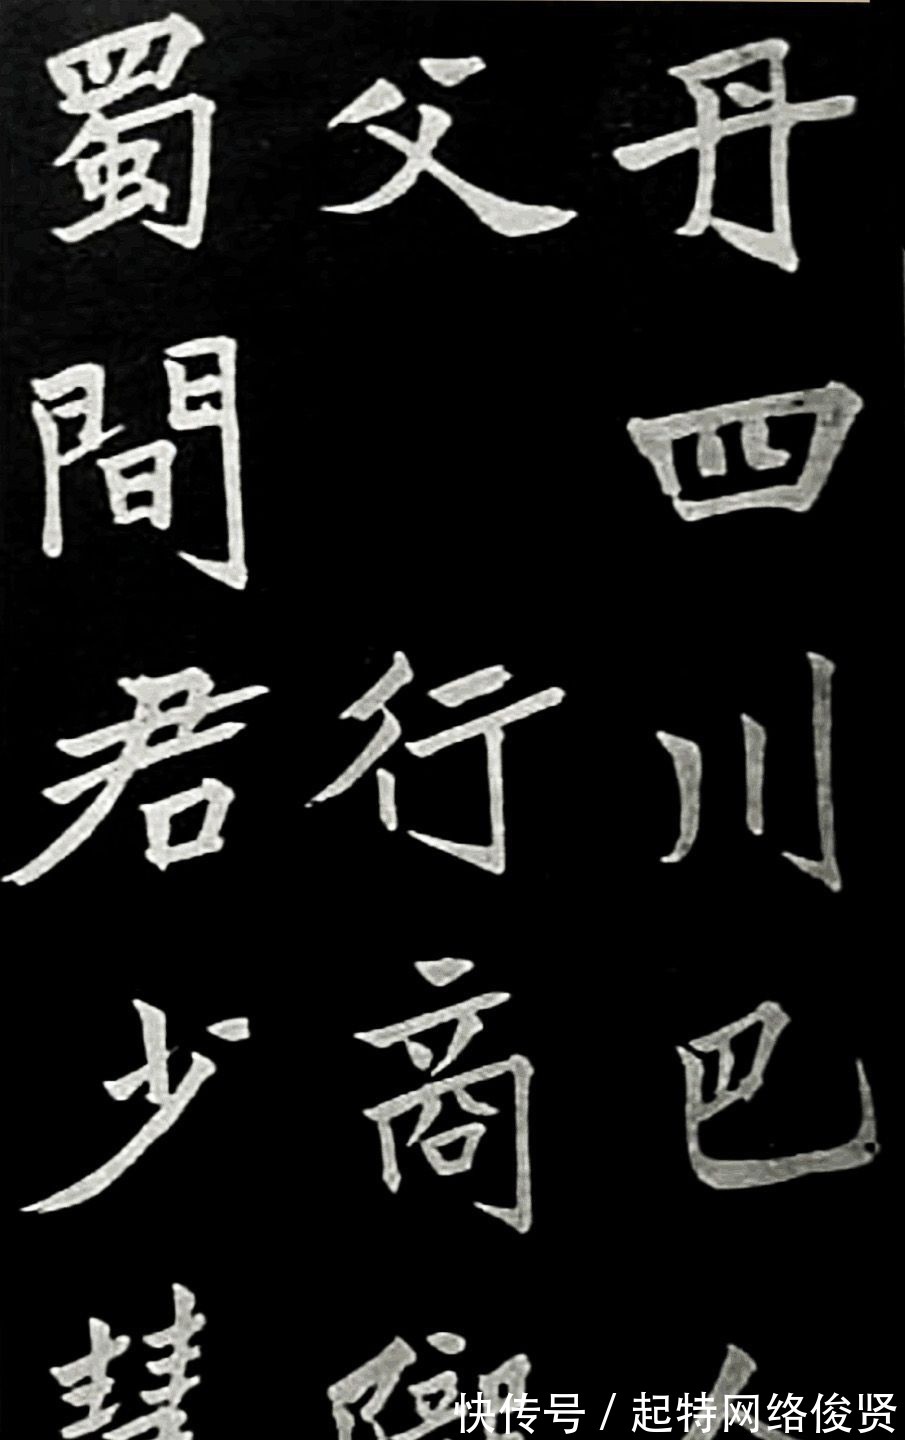 丹四川巴
父 行商
蜀間君少慧
快传号 / 起特网络俊贤